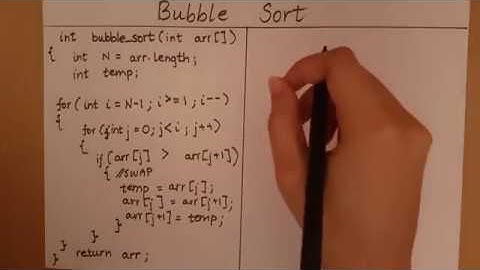 Bubble Sort
int bubble_sort(int arr[])
{ int N = arr.length;
int temp;
for(int i = N-1; i>=1; i--)
{
for(int j=0; j<i; j++)
{
if(arr[j] > arr[j+1])
{ //SWAP
temp = arr[j];
arr[j] = arr[j+1];
arr[j+1] = temp;
}
}
}
} return arr;